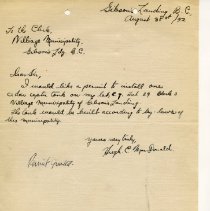 Gibson's Landing B.C.
August 31st /42
To the Clerk,
Village Municipality,
Gibson's Ldg B.C.
Dear Sir,
I would like a permit to install one
cedar septic tank on my lot E.g. Lot 29 Block 2
Village Municipality of Gibson's Landing
The tank would be built according to by laws of
this municipality.
Yours very truly,
Hugh C. MacDonald
Permit granted.